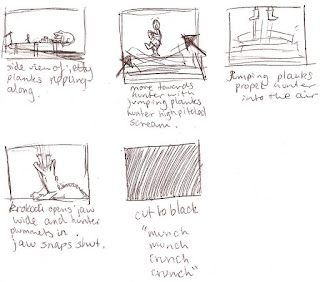 side view of jetty
planks rippling
along.
move towards
hunter with
jumping planks
hunter high pitched
scream.
Jumping planks
propel hunter
into the air
opens jaw
wide and hunter
plummets in.
jaw snaps shut.
cut to black
"munch
munch
crunch
crunch"